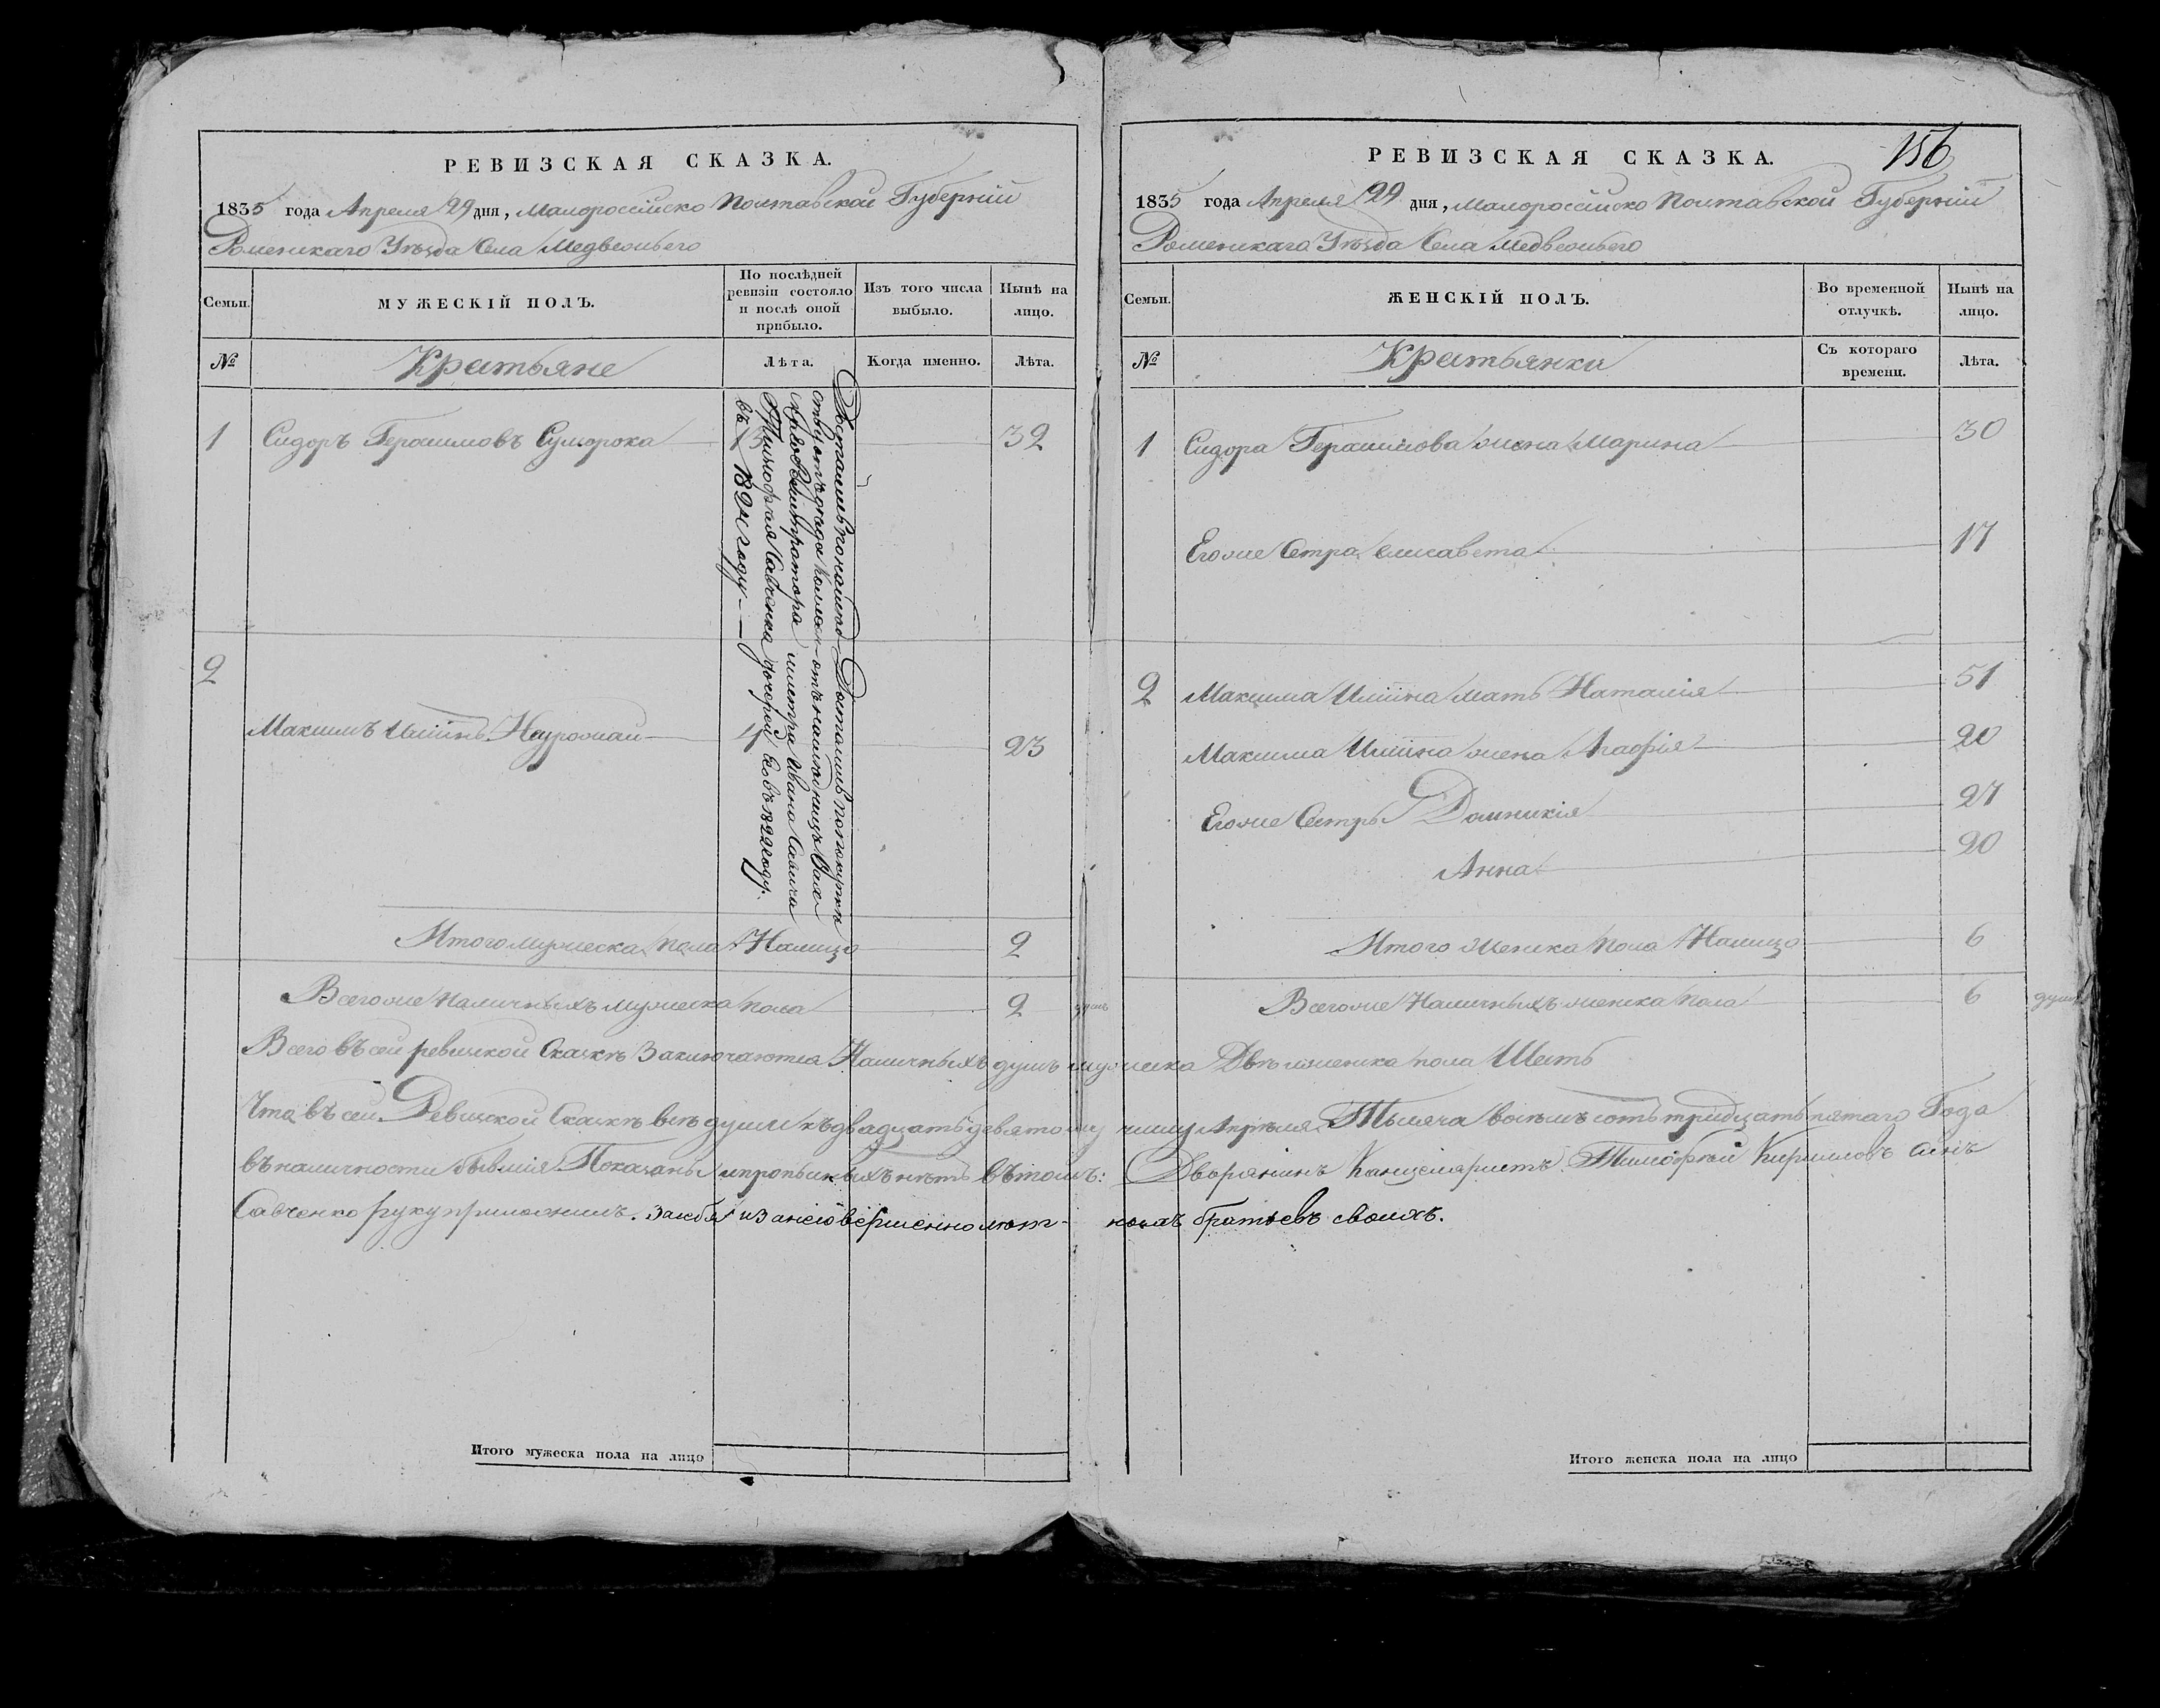 РЕВИЗСКАЯ СКАЗКА.
1835 года Апреля 29 дня, Малороссійско Полтавской Губерніи
Роменскаго Уѣзда Села Медвежьего
Семьи.
МУЖЕСКІЙ ПОЛЪ.
По послѣдней ревизіи состояло и послѣ оной прибыло.
Изъ того числа выбыло.
Нынѣ на лицо.
№
Крестьяне
Лѣта.
Когда именно.
Лѣта.
1 Сидоръ Герасимовъ Суморока 13 32
2
Максимъ Ильинъ 4 23
Итого мужеска пола Налицо 2
Всего же Наличныхъ мужеска пола 2 душъ
въ 1824 году
Савченка дочерей Его въ 1822 году.
РЕВИЗСКАЯ СКАЗКА.
156
1835 года Апреля 29 дня, Малороссійско Полтавской Губерніи
Роменскаго Уѣзда Села Медвежьего
Семьи.
ЖЕНСКІЙ ПОЛЪ.
Во временной отлучкѣ.
Нынѣ на лицо.
№
Крестьянки
Съ котораго времени.
Лѣта.
1 Сидора Герасимова жена Марина 30
Его же Сестра Елисавета 17
2 Максима Ильина мать Наталія 51
Максима Ильина жена Агафія 20
Его же Сестры Домникія 27
Анна 20
Итого женска пола Налицо 6
Всего же Наличныхъ женска пола 6 душъ
Всего въ сей ревизской Сказкѣ Заключаются Наличныхъ душъ мужеска Двѣ женска пола Шесть
Что въ сей Ревизской Сказкѣ всѣ души къ двадцать девятому числу Апрѣля Тысяча восемъ сотъ тридцать пятаго Года
въ наличности бывшія Показаны и прописныхъ нѣтъ въ томъ: Дворянинъ Канцеляристъ Тимофѣй Кирилловъ сынъ
Савченко руку приложилъ. За себя и за несовершеннолѣт- нихъ братьевъ своихъ.
Итого мужеска пола на лицо
Итого женска пола на лицо